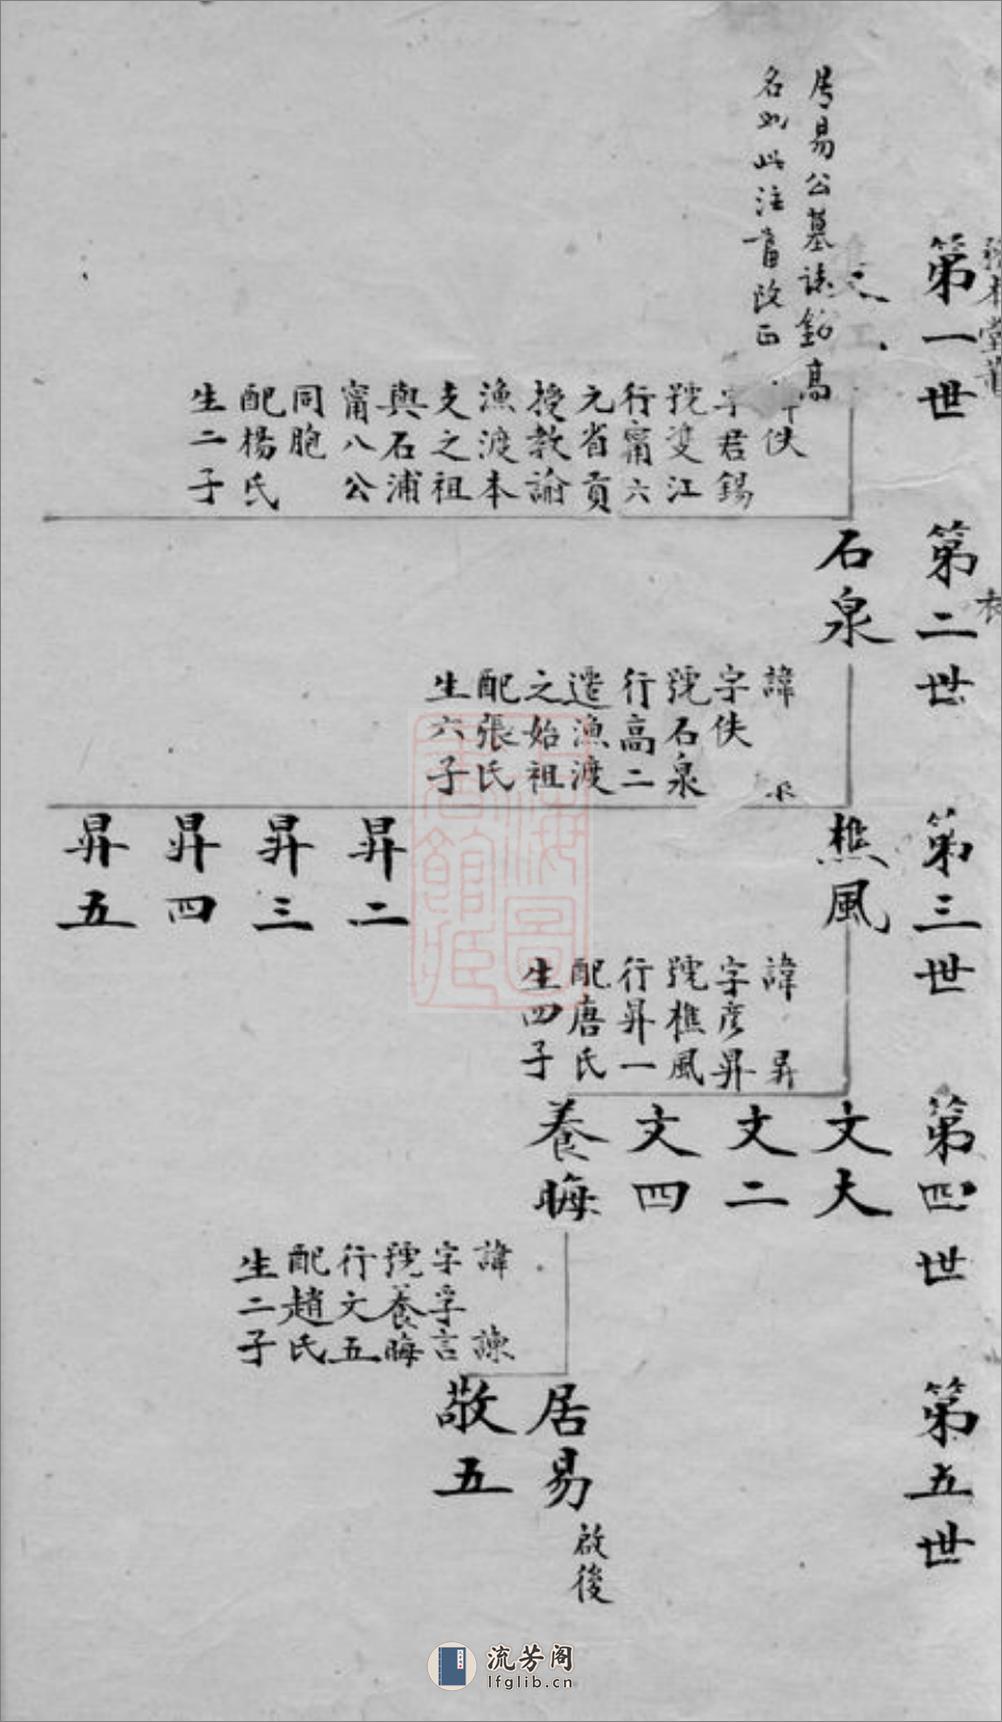 居易公墓誌
名如此注當改正
第一世
諱佚
字君錫
號雙江
行甯六
元省貢
授教諭
漁渡本
支之祖
與石浦
甯八公
同胞
配楊氏
生二子
第二世
石泉
諱
字佚
號石泉
行高二
遷漁渡
之始祖
配張氏
生六子
第三世
樵風
昇二
昇三
昇四
昇五
諱昇
字彥昇
號樵風
行昇一
配唐氏
生四子
第四世
文大
文二
文四
養晦
諱諫
字孚言
號養晦
行文五
配趙氏
生二子
第五世
居易
啟後
敬五
上海圖書館藏
流芳阁
lfglib.cn